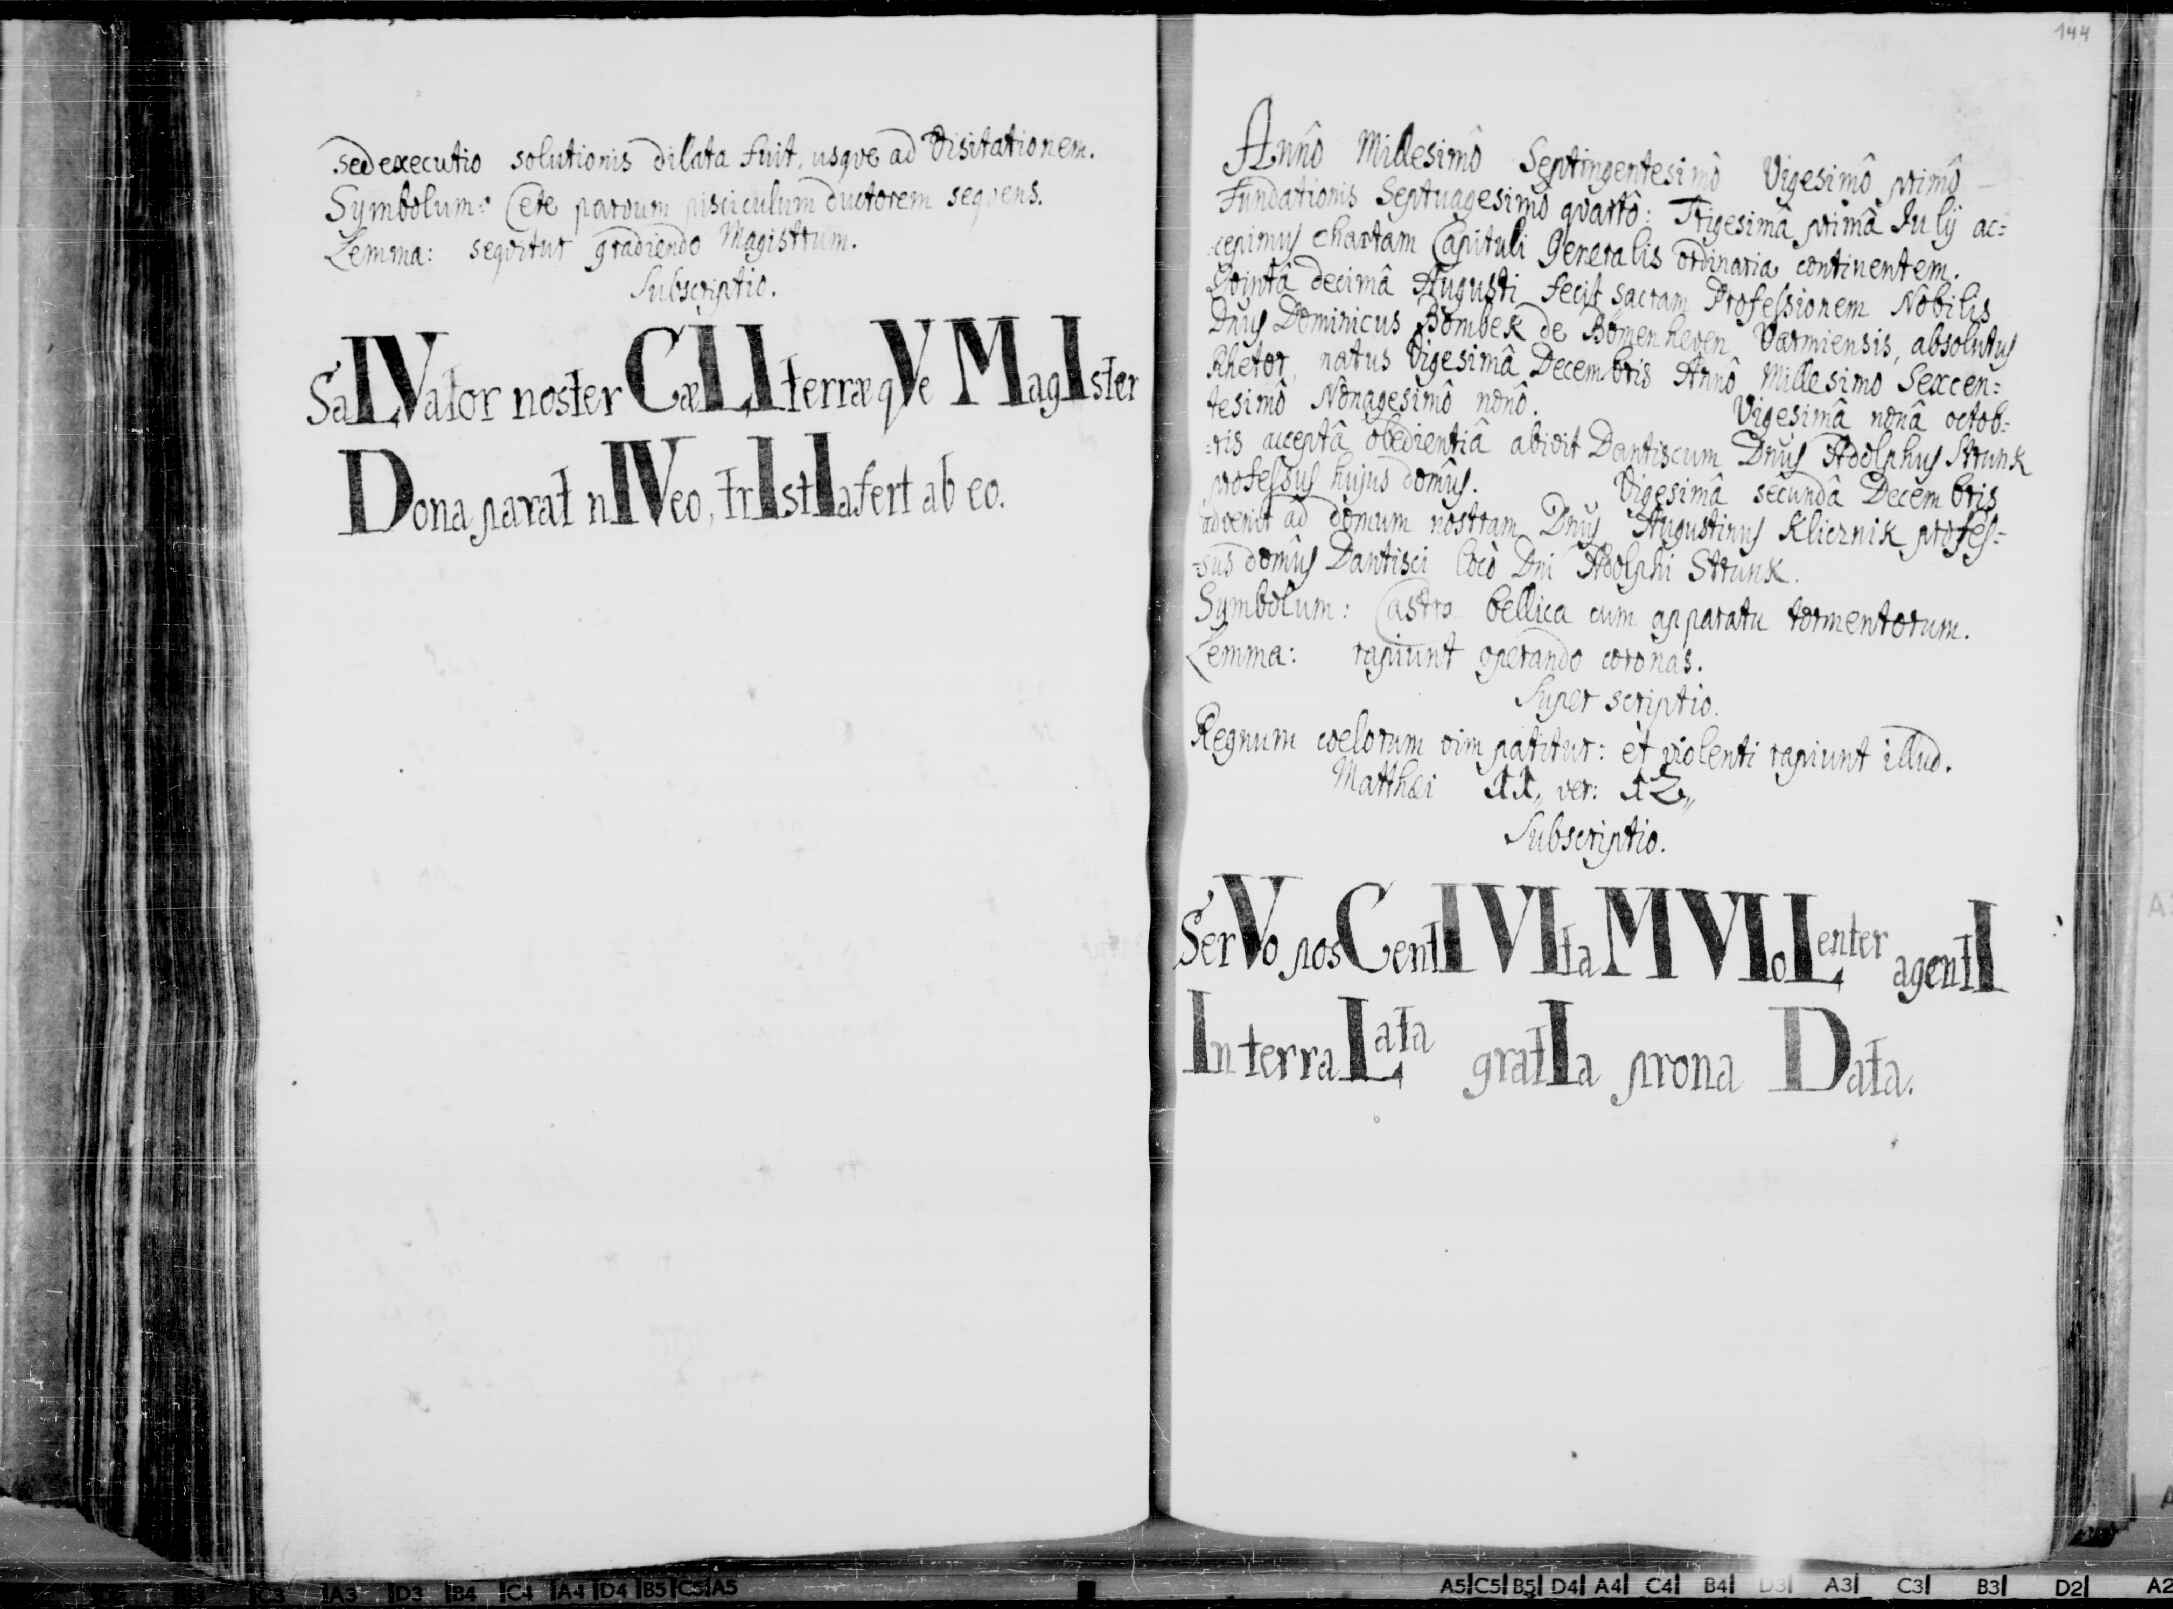 sed executio solutionis dilata fuit, usqve ad Visitationem.
Symbolum: Cete parvum pisciculum ductorem seqvens.
Lemma: seqvitur gradiendo Magistrum.
Subscriptio.
SaLVator noster CæLI terræ qVe MagIster
Dona parat nIVeo, trIstIa fert ab eo.
144
Annô Millesimô Septingentesimô Vigesimô primô
Fundationis Septuagesimô qvartô: Trigesimâ primâ Julij ac=
cepimus chartam Capituli Generalis ordinaria continentem.
Qvintâ decimâ Augusti fecit sacram Professionem Nobilis
Dnus Dominicus Bombek de Bomenheven Varmiensis, absolutus
Rhetor, natus Vigesimâ Decembris Annô Millesimo Sexcen=
tesimô Nonagesimô nonô. Vigesimâ nonâ octob=
=ris acceptâ obedientiâ abivit Dantiscum Dnus Adolphus Strunk
professus hujus domûs. Vigesimâ secundâ Decembris
advenit ad domum nostram Dnus Augustinus Klicznik profes=
=sus domûs Dantisci locô Dni Adolphi Strunk.
Symbolum: Castra bellica cum apparatu tormentorum.
Lemma: rapiunt operando coronas.
Super scriptio.
Regnum coelorum vim patitur: et violenti rapiunt illud.
Matthæi 11,, ver: 12,,
Subscriptio.
SerVo posCentI VIta M VIoLenter agentI
In terra Lata gratIa prona Data.
A5 C5 B5 D4 A4 C4 B4 D3 A3 C3 B3 D2 A2
C3 A3 D3 B4 C4 A4 D4 B5 C5 A5